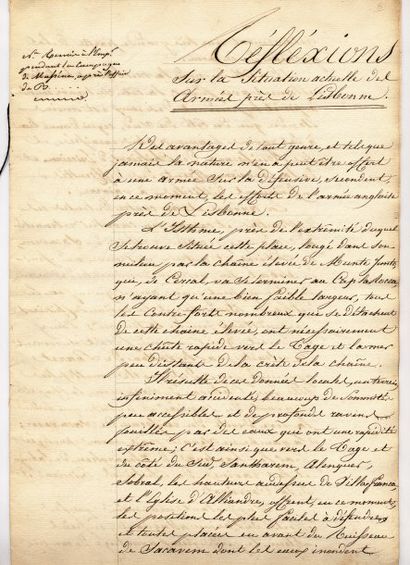 Réfléxions
Sur la Situation actuelle des
Armées près de Lisbonne.
pendant la Campagne
de Massena, après l'affaire
de B.
Des avantages de tout genre, et tels que
jamais la nature n'en a peut être offert
à une armée Sur la défensive, secondent,
en ce moment, les efforts de l'armée anglaise
près de Lisbonne.
L'Isthme, près de l'extrémité duquel
Se trouve Située cette place, longé dans son
milieu par la chaîne élevée de Monte Junto,
qui, de Cercal va Se terminer au Cap la Rocca
n'ayant qu'une bien faible largeur, tous
les Contre-forts nombreux que se détachent
de cette chaîne élevée, ont nécessairement
une chûte rapide vers le Tage et la mer
peu distants de la crête de la chaîne.
Il résulte de ces données locales, un terrein
infiniment accidenté, beaucoup de Sommités
peu accessibles et de profonds ravins
fouillés par des eaux qui ont une rapidité
extrême; C'est ainsi que vers le Tage et
du côté du Sud, Santharem, Alenquer,
Sobral, les hauteurs au dessus de Villafranca
et l'Eglise d'Alhandra, offrent, en ce moment,
les positions les plus fortes à défendre,
et toutes placées en avant du Ruisseau
de Sacavem dont les eaux inondent